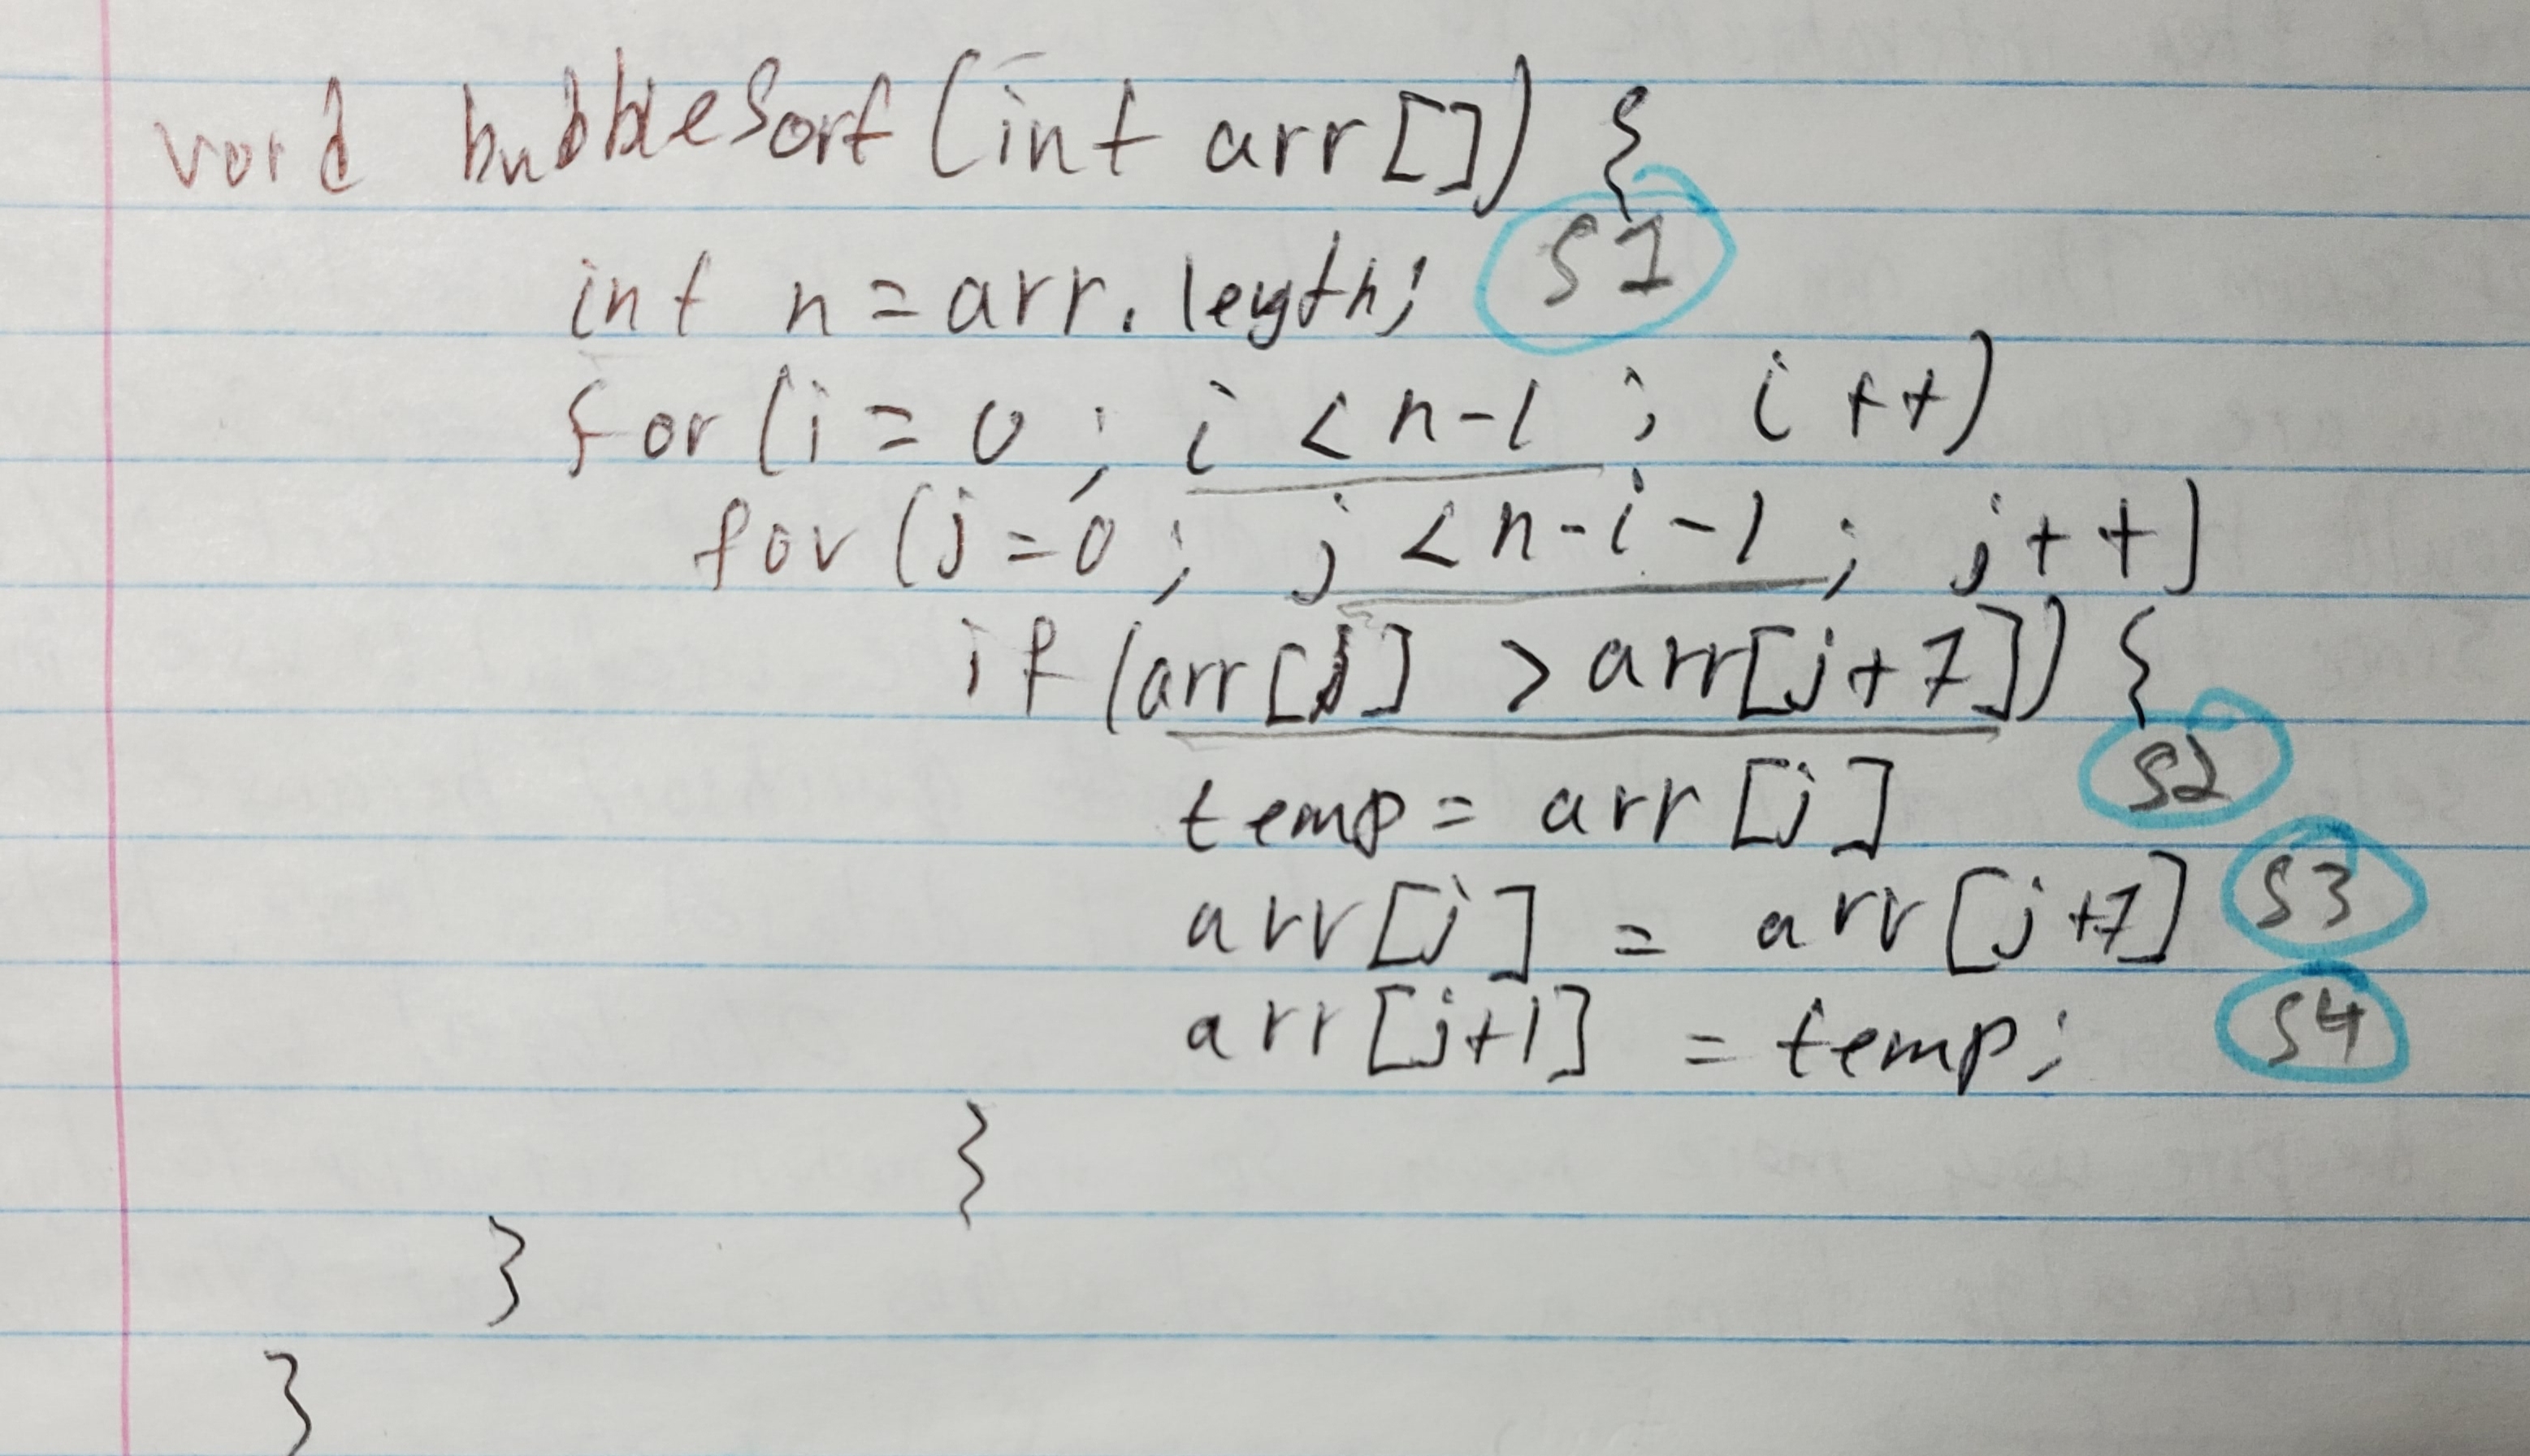 void bubbleSort(int arr[]) {
int n = arr.length; S1
for (i = 0; i < n-1; i++)
for (j = 0; j < n-i-1; j++)
if (arr[j] > arr[j+1]) {
temp = arr[j] S2
arr[j] = arr[j+1] S3
arr[j+1] = temp; S4
}
}
}